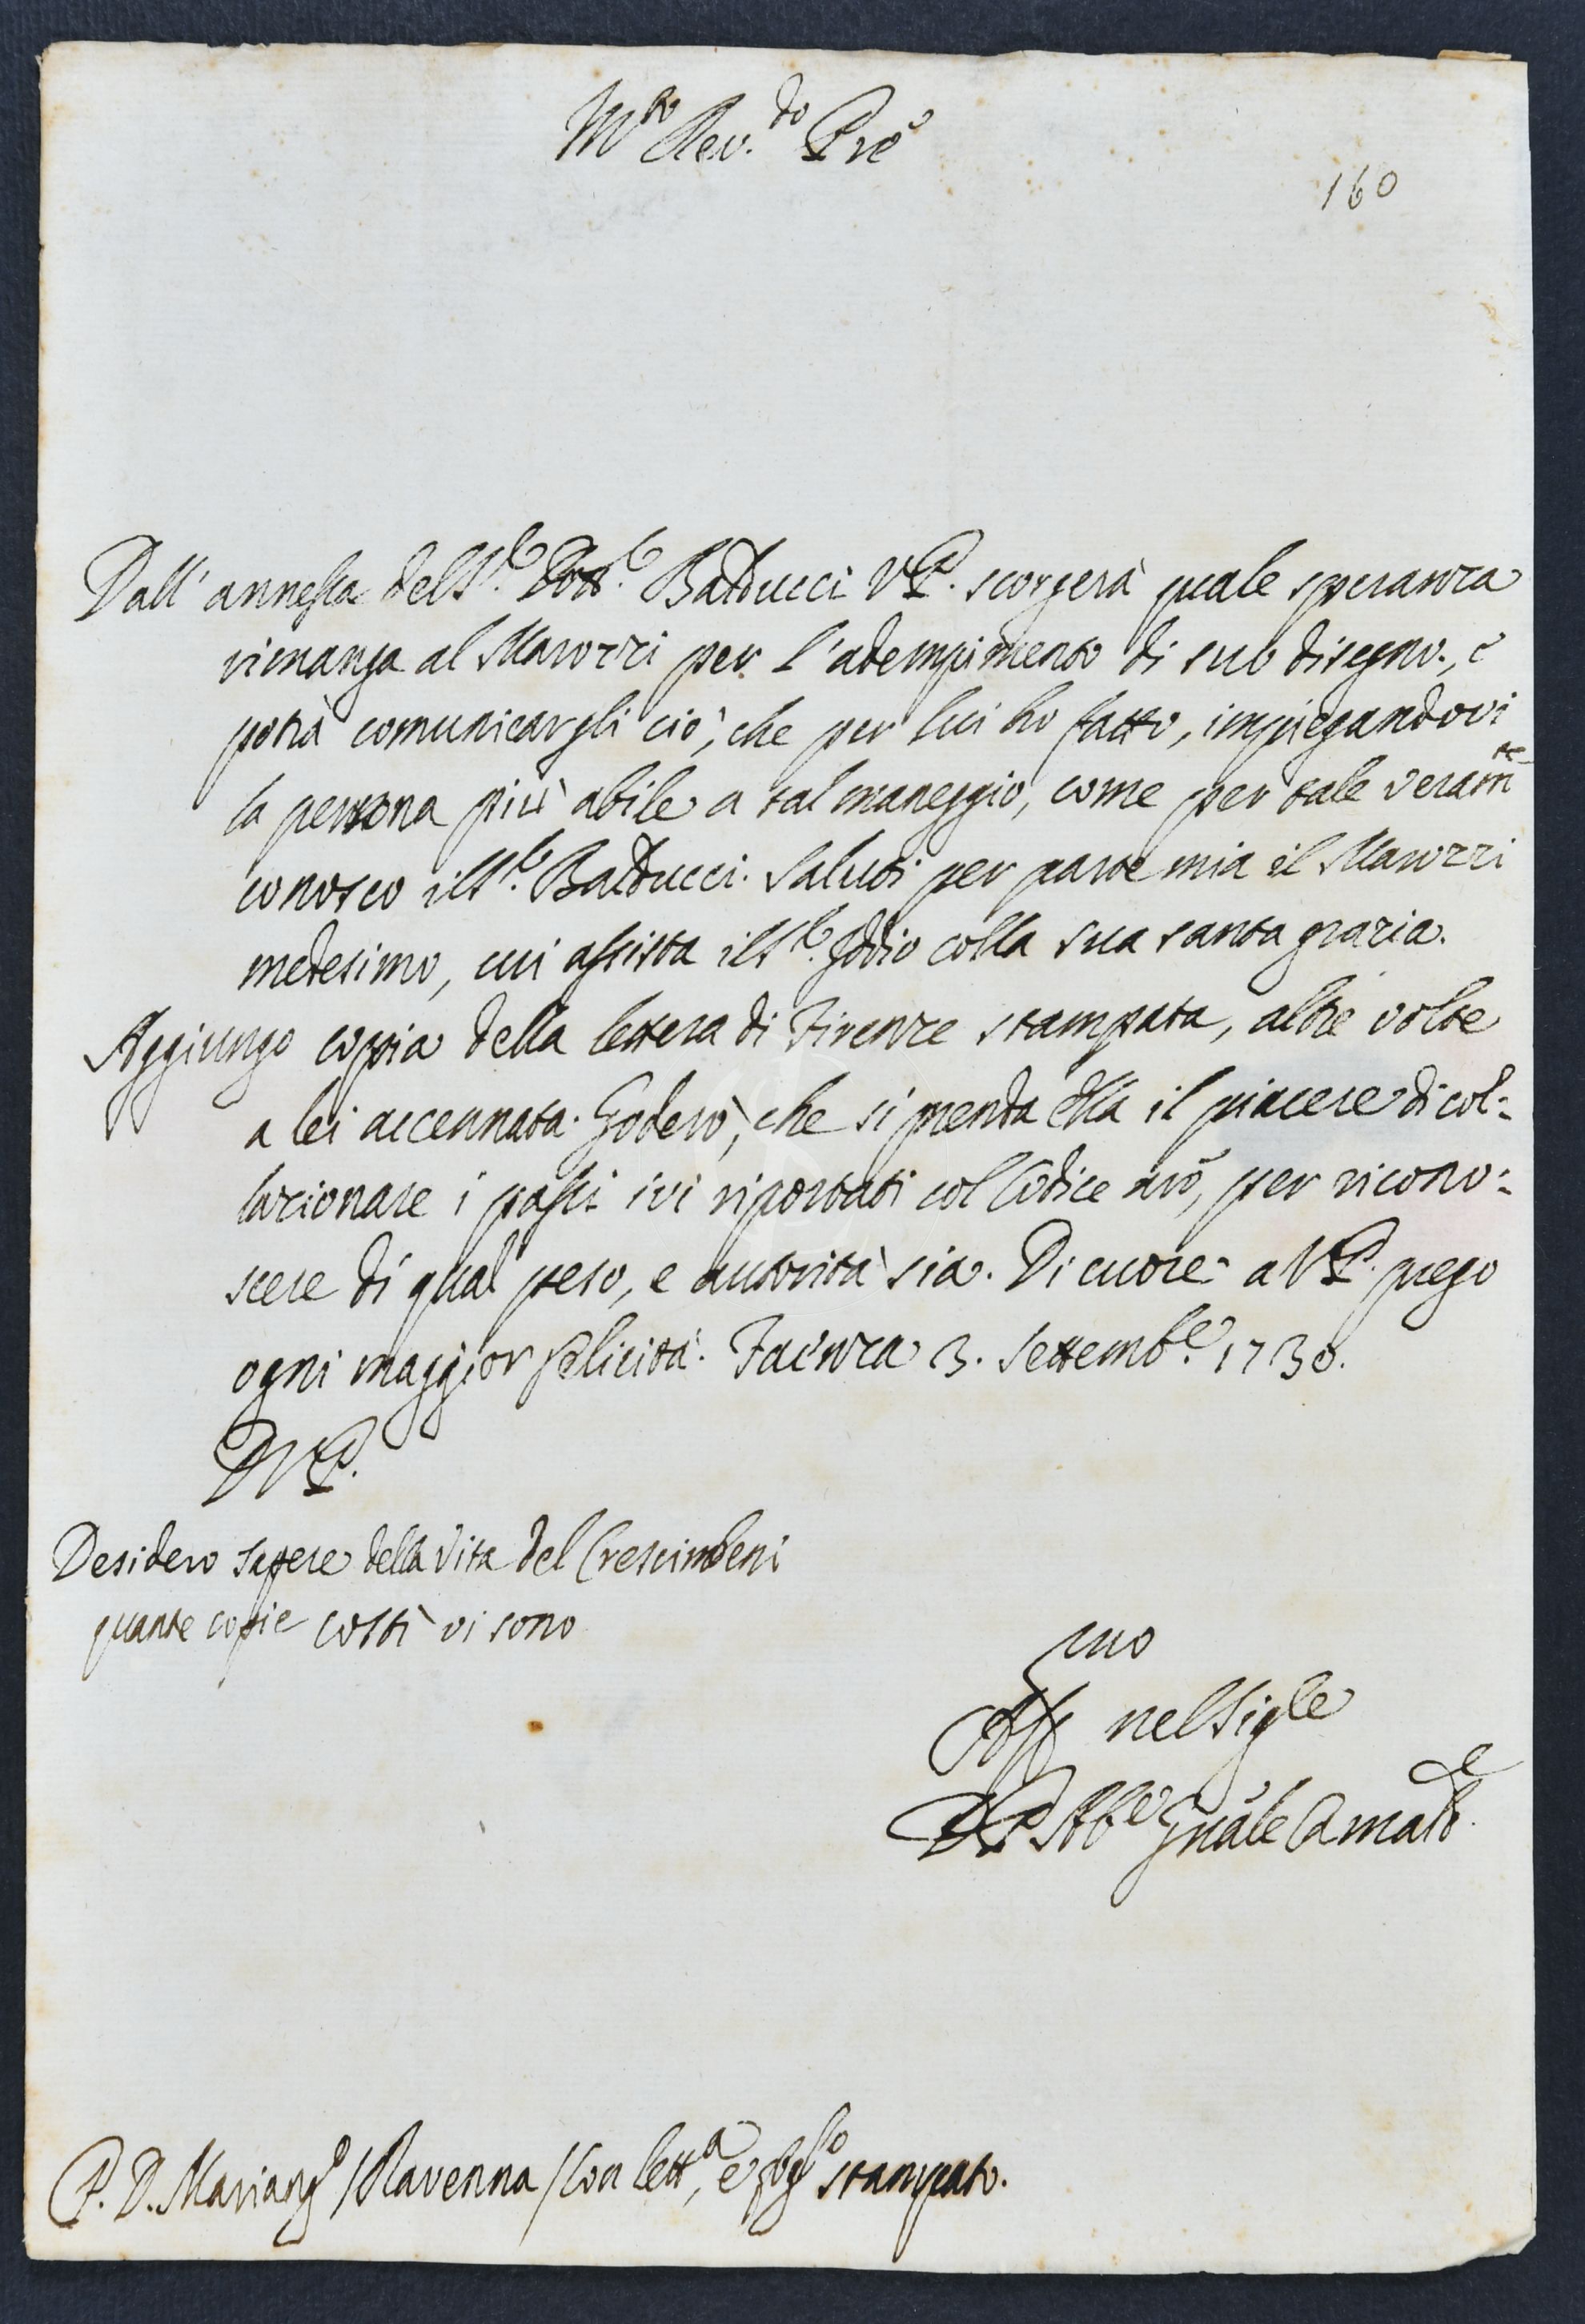 M.to Rev.do Prẽ
160
Dall' annessa del S.r Dott.r Balducci VP. scorgerà quale speranza
rimanga al Marozzi per l'adempimento di suo disegno, e
potrà comunicargli ciò, che per lui ho fatto, impiegandovi
la persona più abile a tal maneggio, come per tale veram.te
conosco il S.r Balducci. Saluti per parte mia il Marozzi
medesimo, cui assista il S.r Iddio colla sua santa grazia.
Aggiungo copia della lettera di Firenze stampata, altre volte
a lei accennata. Goderò, che si prenda ella il piacere di col=
lazionare i passi ivi riportati col Codice nrõ, per ricono=
scere di qual peso, e autorità sia. Di cuore a VP. prego
ogni maggior felicità. Faenza 3. Settemb.e 1730.
DVP.
Desidero sapere della Vita del Crescimbeni
quante copie costì vi sono
suo
Aff nel Sig.re
D.P. Ab.e Gnãle Camald.e
P. D. Mariang.o / Ravenna / Con lett.a, e fog.lo stampato.